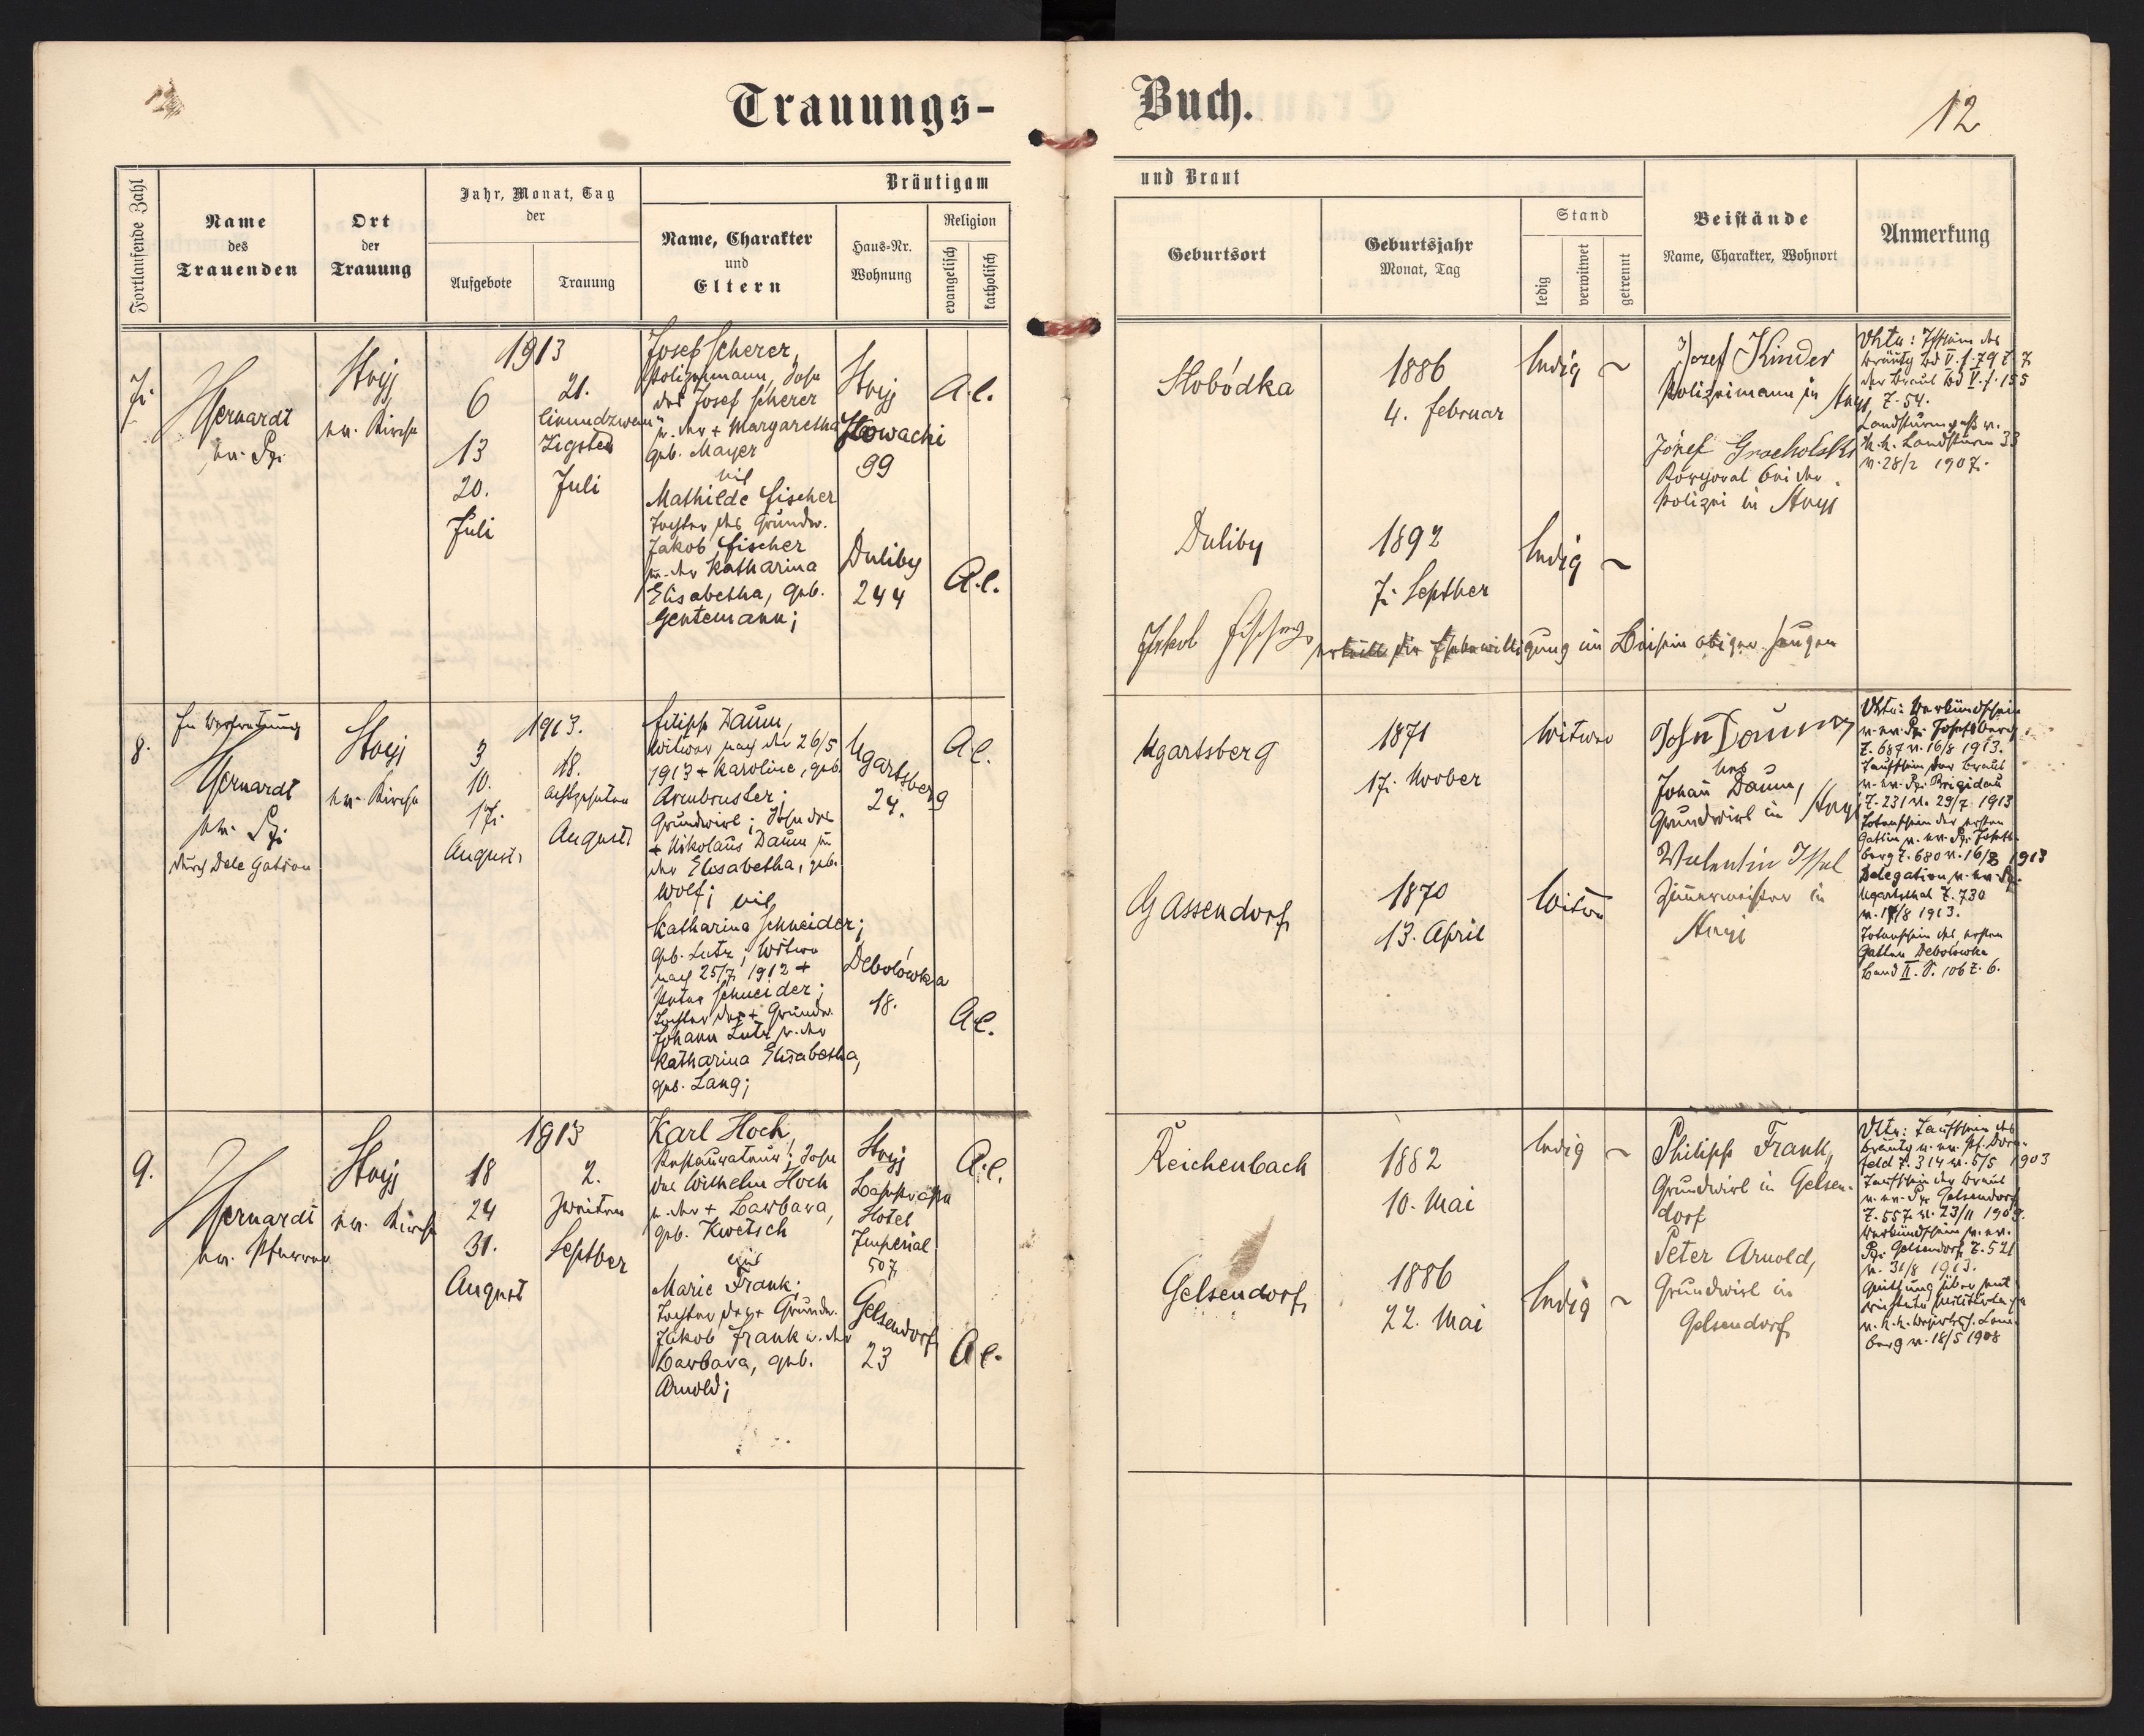 Trauungs-
Buch.
12
Fortlaufende Zahl
Name
des
Trauenden
Ort
der
Trauung
Jahr, Monat, Tag
der
Aufgebote
Trauung
Bräutigam
Name, Charakter
und
Eltern
Haus-Nr.
Wohnung
Religion
evangelisch
katholisch
und Braut
Geburtsort
Geburtsjahr
Monat, Tag
Stand
ledig
verwitwet
getrennt
Beistände
Name, Charakter, Wohnort
Anmerkung
7.
ev. Pfr.
Stryj
ev. Kirche
1913
6
13
20.
Juli
21.
Einundzwan-
zigsten
Juli
Josef Scherer,
Polizeimann, Sohn
des Josef Scherer
u. der + Margaretha
geb. Mayer
mit
Mathilde Fischer
Tochter des Grundw.
Jakob Fischer
u. der Katharina
Elisabetha, geb.
Gentemann;
Stryj
Slowacki
99
Duliby
244
A.C.
A.C.
Slobódka
1886
4. Februar
ledig
Duliby
1892
7. Septber
ledig
Josef Kinder
Polizeimann in Stryj
Józef Grocholski
Korporal bei der
Polizei in Stryj
Z. 54.
Landsturmpaß v.
k.k. Landsturm 33
v. 28/2 1907.
Jakob Fischer erteilt die Ehebewilligung im Beisein obiger Zeugen
8.
In Vertretung
ev. Pfr.
durch Delegation
Stryj
ev. Kirche
1913.
3
10.
17.
August
18.
achtzehnten
August
Filipp Daum,
Witwer nach der 26/5
1913 + Karoline, geb.
Armbruster;
Grundwirt; Sohn des
+ Nikolaus Daum u.
der Elisabetha, geb.
Wolf; mit
Katharina Schneider;
geb. Lutz; Witwe
nach 25/7 1912 +
Peter Schneider;
Tochter des + Grundw.
Johann Lutz u. der
Katharina Elisabetha,
geb. Lang;
Ugartsberg
24.
Debolówka
18.
A.C.
A.C.
Ugartsberg
1871
17. Novber
Witwer
Gassendorf
1870
13. April
Witwe
Johann Daum,
Grundwirt in Stryj
Valentin
Zimmermeister in
Stryj
Verkündschein
v. ev. Pfr. Josefsberg
Z. 687 v. 16/8 1913.
Taufschein der Braut
v. ev. Pfr. Brigidau
Z. 231 v. 29/7 1913
Totenschein der ersten
Gattin v. ev. Pfr. Josefs-
berg Z. 680 v. 16/8 1913
Delegation v. ev. Pfr.
Ugartsthal Z. 730
v. 17/8 1913.
Totenschein des ersten
Gatten Debolówka
Band II. S. 106 Z. 6.
9.
ev. Pfarrer
Stryj
ev. Kirche
1913
18
24
31.
August
2.
zweiten
Septber
Karl Hoch,
Restaurateur; Sohn
des Wilhelm Hoch
u. der + Barbara,
geb. Kwetsch
mit
Marie Frank;
Tochter des + Grundw.
Jakob Frank u. der
Barbara, geb.
Arnold;
Stryj
Hotel
Imperial
507
Gelsendorf
23
A.C.
A.C.
Reichenbach
1882
10. Mai
ledig
Gelsendorf
1886
22. Mai
ledig
Philipp Frank,
Grundwirt in Gelsen-
dorf
Peter Arnold,
Grundwirt in
Gelsendorf
Taufschein des
Bräutg. v. ev. Pf. Dorn-
feld Z. 314 v. 5/5 1903
Taufschein der Braut
v. ev. Pfr. Gelsendorf
Verkündschein v. ev.
Pfr. Gelsendorf Z. 521
v. 31/8 1913.
Quittung über ent-
richtete Militärtaxe
Lem-
berg v. 18/5 1908